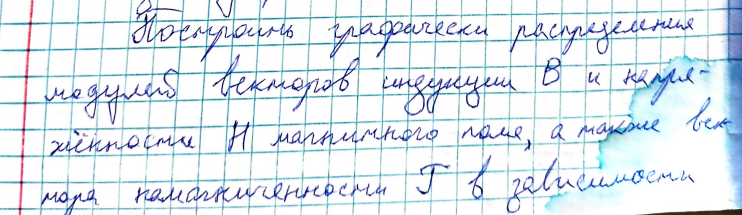 Построить графически распределения
модулей векторов индукции B и напря-
жённости H магнитного поля, а также век-
тора намагниченности J в зависимости